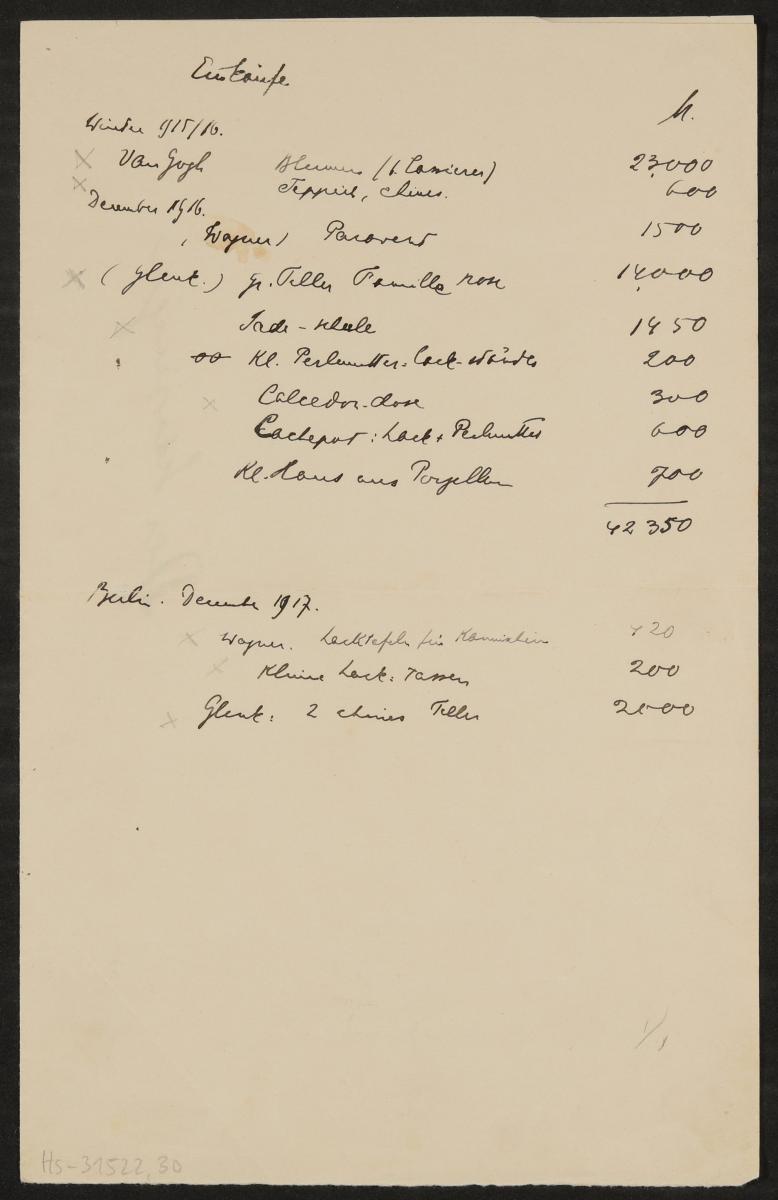 Einkäufe
M.
Winter 915/16.
Van Gogh Blumen (b. Cassierer) 23,000
Teppich, chines. 600
December 1916.
(Wagner) Paravent 1500
(Glenk.) gr. Teller Famille rose 14,000
Jade-schale 1450
Kl. Perlmutter-Lack-ständer 200
Calcedon-dose 300
Cachepot: Lack + Perlmutter 600
Kl. Haus aus Porzellan 700
42350
Berlin. December 1917.
Wagner. Lacktafeln für 420
Kleine Lack-Tassen 200
Glenk: 2 chines Teller 2000
1/1
Hs-31522,30